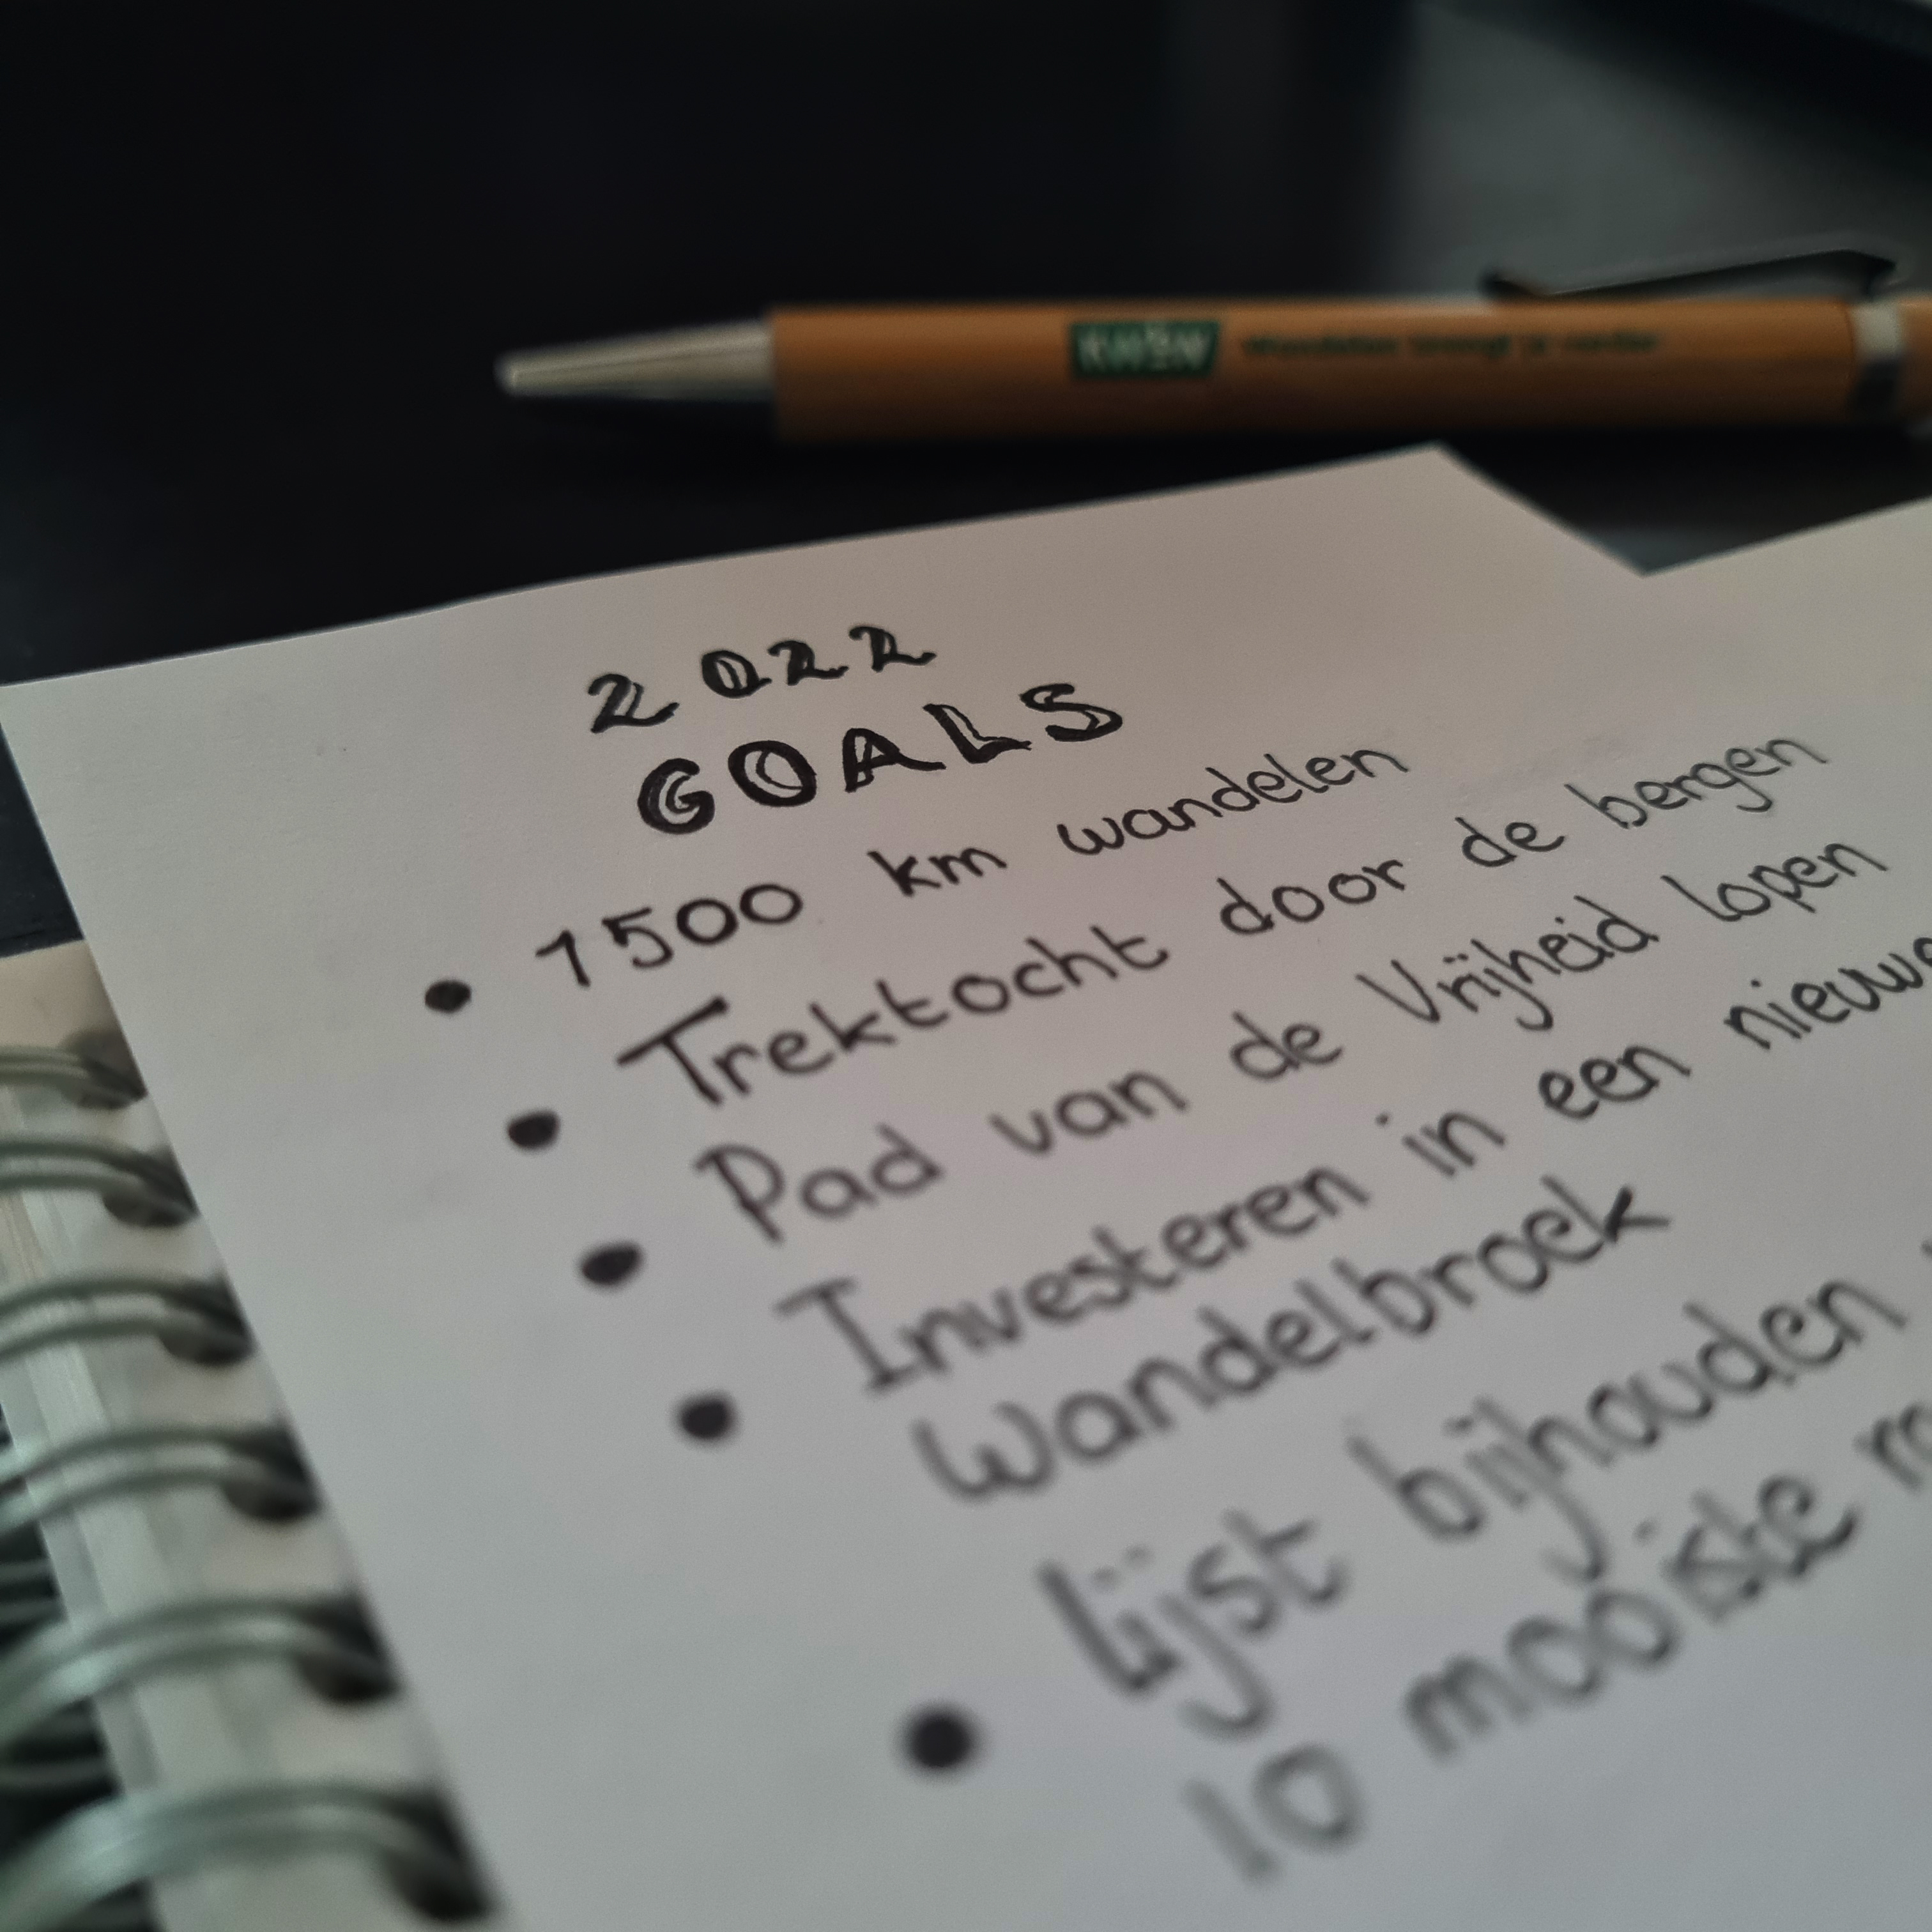 KWbN Wandelen brengt je verder
2022
GOALS
• 1500 km wandelen
• Trektocht door de bergen
• Pad van de Vrijheid lopen
• Investeren in een
wandelbroek
• lijst bijhouden
10 mooiste